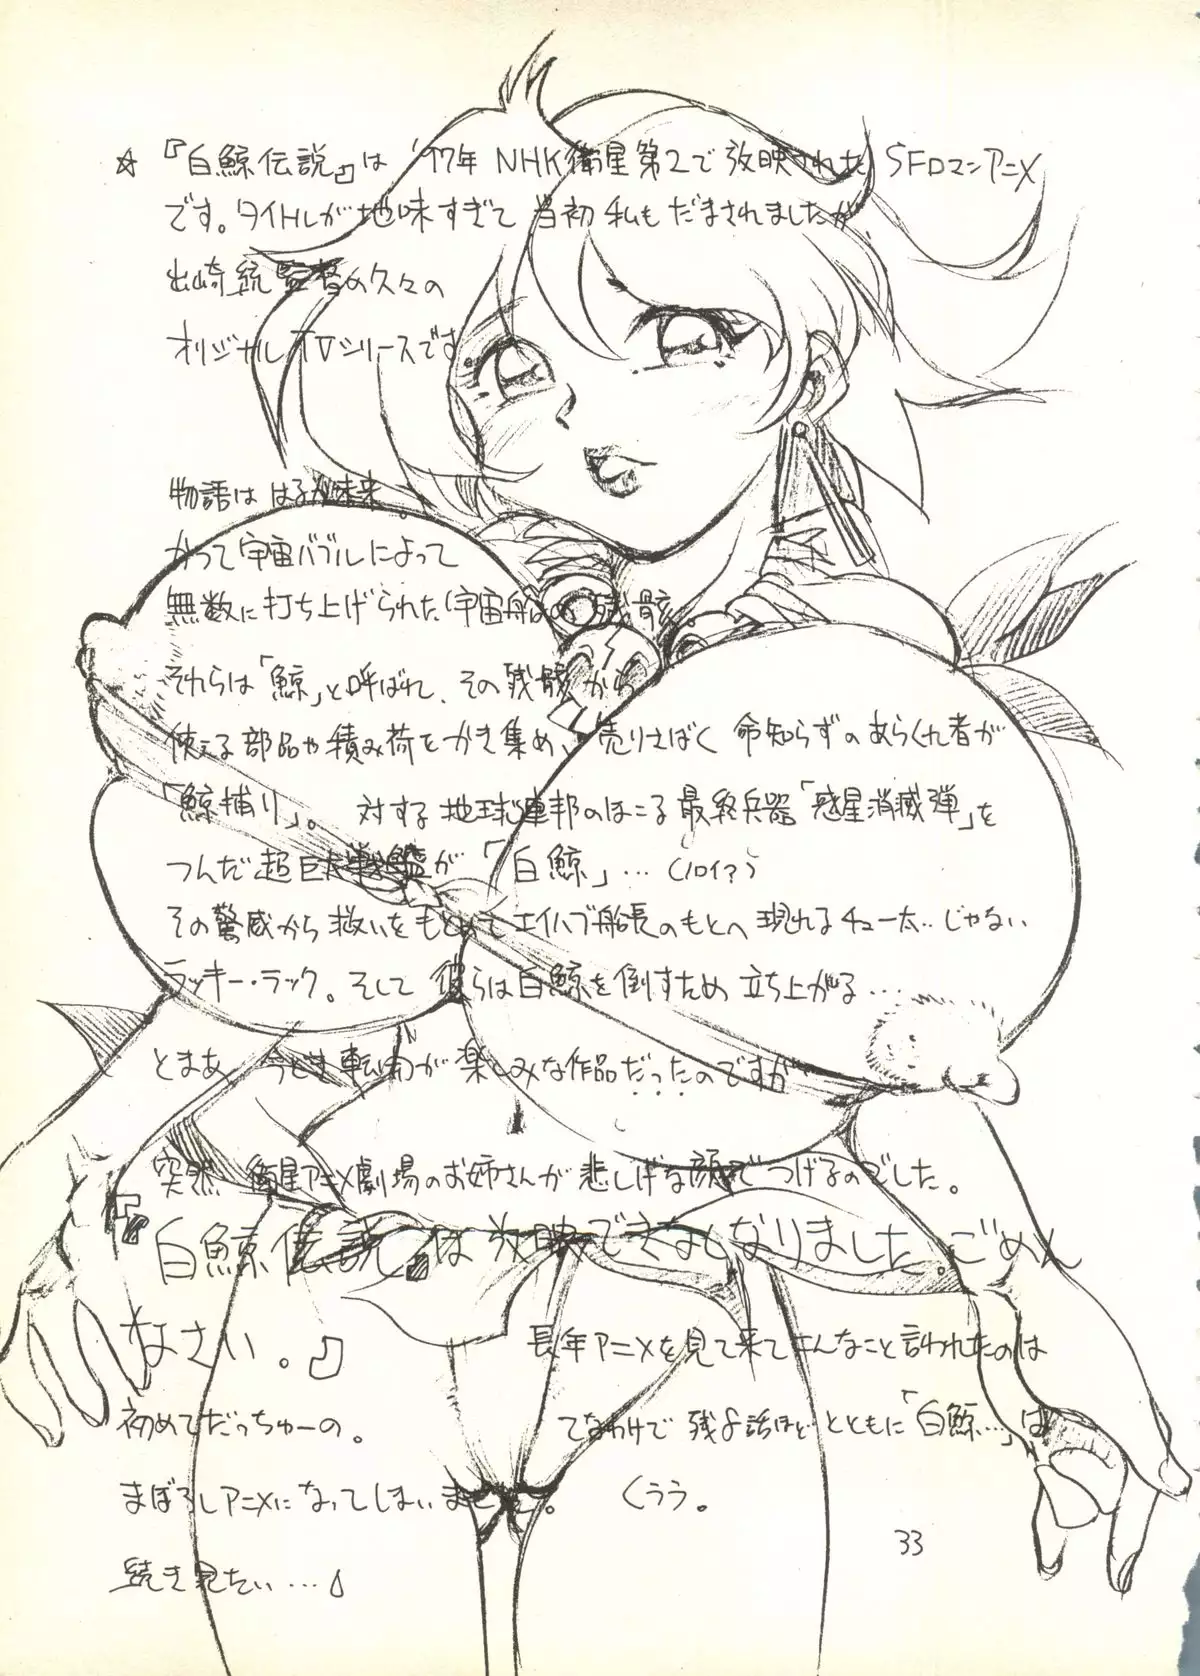 ☆『白鯨伝説』は '97年 NHK衛星第2で放映された SFロマンアニメ
です。タイトルが地味すぎて 当初 私も だまされましたが
出崎統監督の久々の
オリジナルTVシリーズです。
物語は はるか未来。
かつて宇宙バブルによって
無数に打ち上げられた宇宙船の残骸。
それらは「鯨」と呼ばれ、その残骸から
使える部品や積み荷をかき集め、売りさばく 命知らずのあらくれ者が
「鯨捕り」。 対する地球連邦のほこる最終兵器「惑星消滅弾」を
つんだ超巨大戦艦が「白鯨」… (ノロイ?)
その驚威から救いをもとめてエイハブ船長のもとへ現れるチュー太‥じゃない
ラッキー・ラック。そして 彼らは白鯨を倒すため 立ち上がる…
とまあ、今どき転いが楽しみな作品だったのですが
・・・
突然 衛星アニメ劇場のお姉さんが 悲しげな顔でつげるのでした。
『白鯨伝説』は放映できなくなりました。ごめん
なさい。』
長年アニメを見て来てこんなこと言われたのは
初めてだっちゅーの。
てなわけで 残8話ほどとともに「白鯨…」は
まぼろしアニメになってしまいました。 くうう。
続き見たい…♪
33